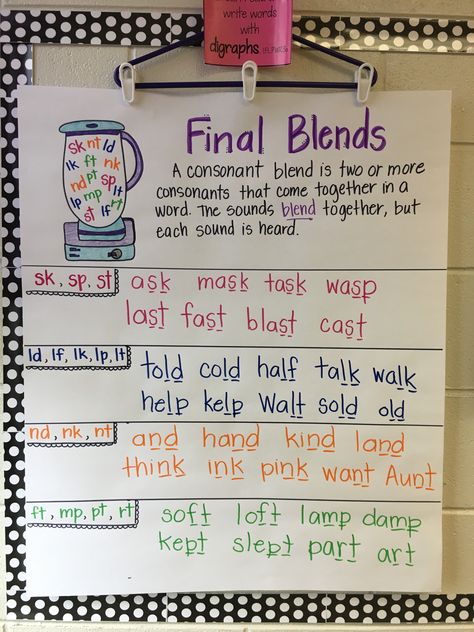 write words
with
digraphs
Final Blends
sk nt ld
lk ft nk
nd pt sp lt
lp mp rt
st lf
A consonant blend is two or more
consonants that come together in a
word. The sounds blend together, but
each sound is heard.
sk, sp, st
ask mask task wasp
last fast blast cast
ld, lf, lk, lp, lt
told cold half talk walk
help kelp Walt sold old
nd, nk, nt
and hand kind land
think ink pink want Aunt
ft, mp, pt, rt
soft loft lamp damp
kept slept part art